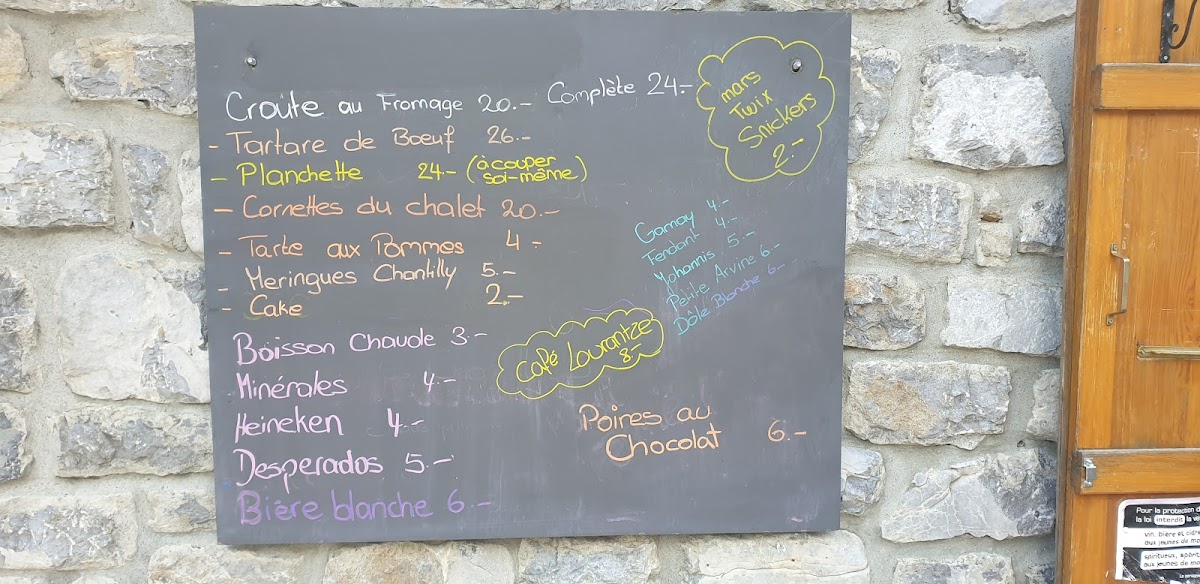 Croûte au Fromage 20.- Complète 24.-
- Tartare de Bœuf 26.-
- Planchette 24.- (à couper soi-même)
- Cornettes du chalet 20.-
- Tarte aux Pommes 4.-
- Meringues Chantilly 5.-
- Cake 2.-
Boisson Chaude 3.-
Minérales 4.-
Heineken 4.-
Desperados 5.-
Bière blanche 6.-
mars
Twix
Snickers
2.-
Gamay 4.-
Fendant 4.-
Johannis 5.-
Petite Arvine 6.-
Dôle Blanche 6.-
Café Lourantze
8.-
Poires au
Chocolat 6.-
Pour la protection d
la loi interdit la v
vin, bière et cidr
aux jeunes de mo
spiritueux, apérit
aux jeunes de